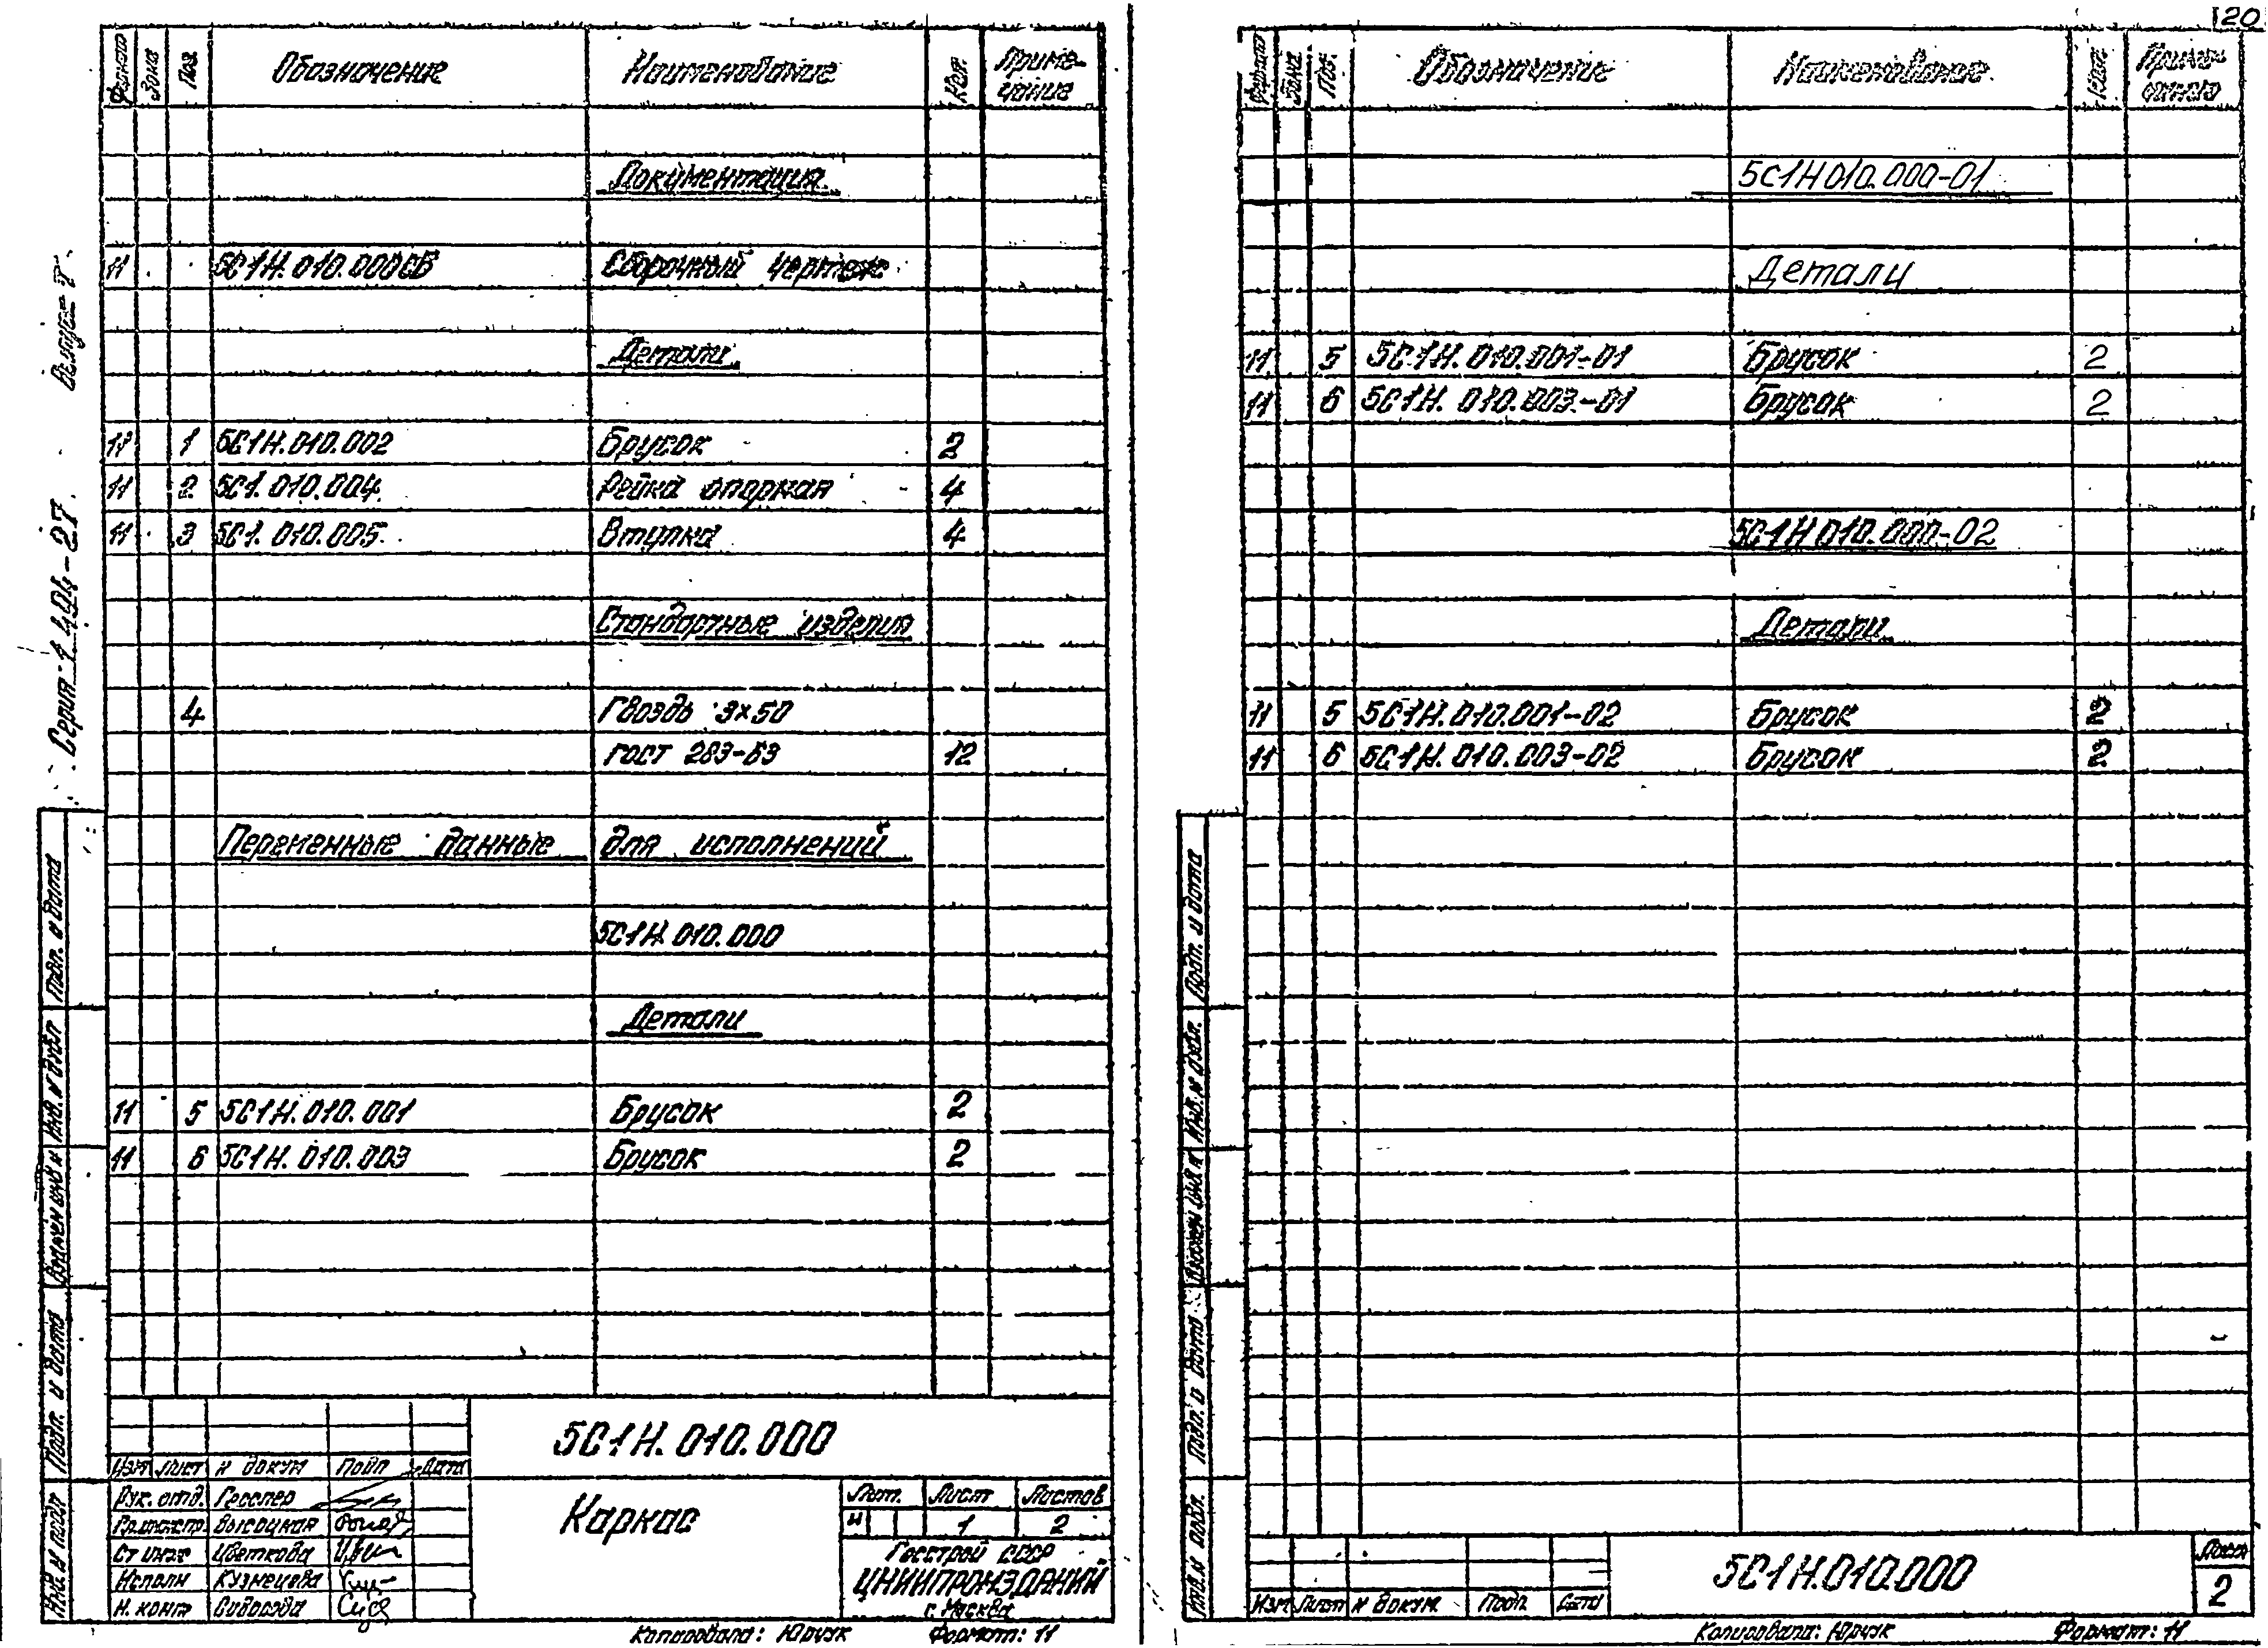 120
Серия 1.404-27. Выпуск
Формат Зона Поз. Обозначение Наименование Кол. Приме-
чание
Документация
11 5С1Н.010.000СБ Сборочный чертеж
Детали
11 1 5С1Н.010.002 Брусок 2
11 2 5С1.010.004 Рейка опорная 4
11 3 5С1.010.005 Втулка 4
Стандартные изделия
4 Гвоздь 3×50
ГОСТ 283-63 12
Переменные данные для исполнений
5С1Н.010.000
Детали
11 5 5С1Н.010.001 Брусок 2
11 6 5С1Н.010.003 Брусок 2
Подп. и дата
Инв. № дубл
Взамен инв №
Подп. и дата
Инв № подл
5С1Н.010.000
Изм Лист № докум Подп Дата
Рук. отд. Гесслер
Высоцкая
Ст инж Цветкова
Исполн Кузнецова
Н. контр
Каркас
Лит. Лист Листов
И 1 2
Госстрой СССР
ЦНИИПРОМЗДАНИЙ
г. Москва
Копировала: Юрчук Формат: 11
Формат Зона Поз. Обозначение Наименование Кол. Приме-
чание
5С1Н010.000-01
Детали
11 5 5С1Н.010.001-01 Брусок 2
11 6 5С1Н.010.003-01 Брусок 2
5С1Н010.000-02
Детали
11 5 5С1Н.010.001-02 Брусок 2
11 6 5С1Н.010.003-02 Брусок 2
Подп. и дата
Инв. № дубл.
Взамен инв №
Подп. и дата
Инв. № подл.
Изм Лист № докум. Подп. Дата
5С1Н.010.000
Лист
2
Копировала: Юрчук Формат: 11